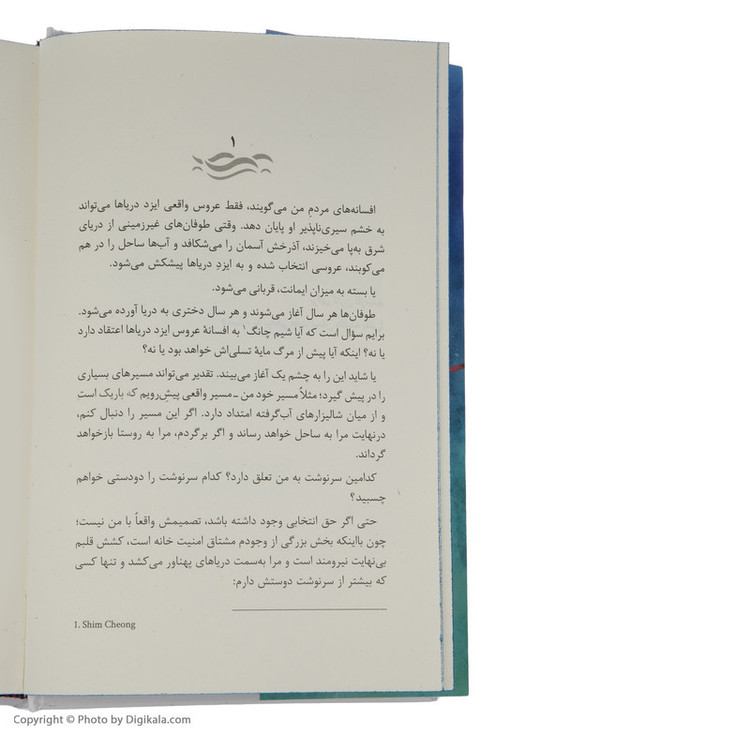 ۱
افسانه‌های مردم من می‌گویند، فقط عروس واقعی ایزد دریاها می‌تواند
به خشم سیری‌ناپذیر او پایان دهد. وقتی طوفان‌های غیرزمینی از دریای
شرق به‌پا می‌خیزند، آذرخش آسمان را می‌شکافد و آب‌ها ساحل را در هم
می‌کوبند، عروسی انتخاب شده و به ایزدِ دریاها پیشکش می‌شود.
یا بسته به میزان ایمانت، قربانی می‌شود.
طوفان‌ها هر سال آغاز می‌شوند و هر سال دختری به دریا آورده می‌شود.
برایم سؤال است که آیا شیم چانگ۱ به افسانهٔ عروس ایزد دریاها اعتقاد دارد
یا نه؟ اینکه آیا پیش از مرگ مایهٔ تسلی‌اش خواهد بود یا نه؟
یا شاید این را به چشم یک آغاز می‌بیند. تقدیر می‌تواند مسیرهای بسیاری
را در پیش گیرد؛ مثلاً مسیر خود من ـ مسیر واقعی پیشِ‌رویم که باریک است
و از میان شالیزارهای آب‌گرفته امتداد دارد. اگر این مسیر را دنبال کنم،
درنهایت مرا به ساحل خواهد رساند و اگر برگردم، مرا به روستا بازخواهد
گرداند.
کدامین سرنوشت به من تعلق دارد؟ کدام سرنوشت را دودستی خواهم
چسبید؟
حتی اگر حق انتخابی وجود داشته باشد، تصمیمش واقعاً با من نیست؛
چون بااینکه بخش بزرگی از وجودم مشتاق امنیت خانه است، کشش قلبم
بی‌نهایت نیرومند است و مرا به‌سمت دریاهای پهناور می‌کشد و تنها کسی
که بیشتر از سرنوشت دوستش دارم:
1. Shim Cheong
Copyright © Photo by Digikala.com